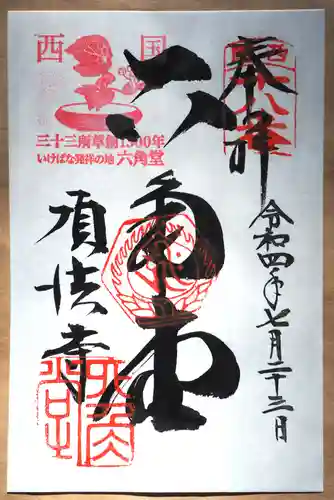 奉拝
西国十八番
令和四年七月二十三日
六角堂
西国
三十三所草創1300年
いけばな発祥の地 六角堂
頂法寺